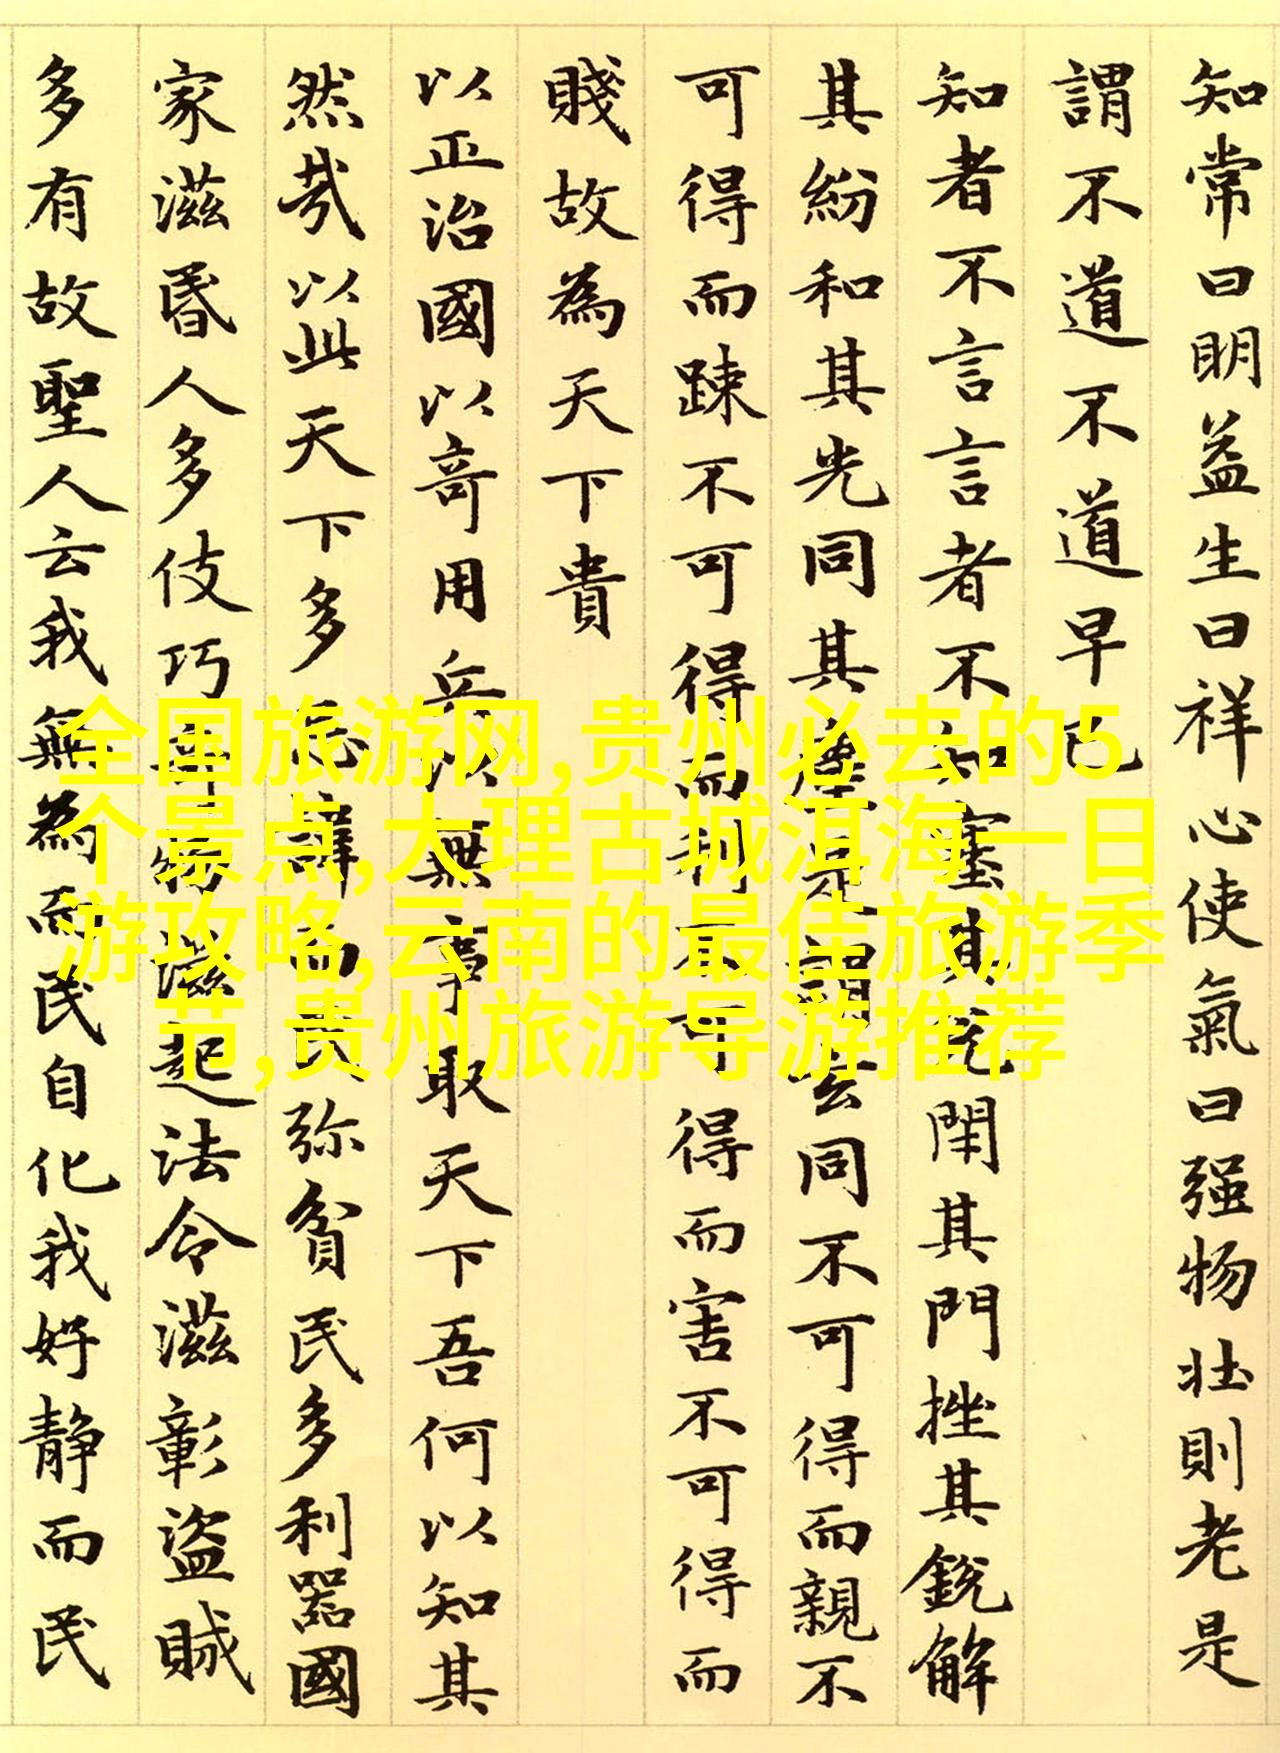 知常曰明益生曰祥心使氣曰强物壮則老是
謂不道不道早已
知者不言言者不知塞其兌閉其門挫其銳解
其紛和其光同其塵是謂玄同不可得而親不
可得而踈不可得而利不可得而害不可得而
賤故為天下貴
以正治國以奇用兵以無事取天下吾何以知其
然哉以此天下多忌諱而民弥貧民多利器國
家滋昏人多伎巧奇物滋起法令滋彰盜賊
多有故聖人云我無為而民自化我好静而民
全国旅游网,贵州必去的5
个景点,大理古城洱海一日
游攻略,云南的最佳旅游季
节,贵州旅游导游推荐